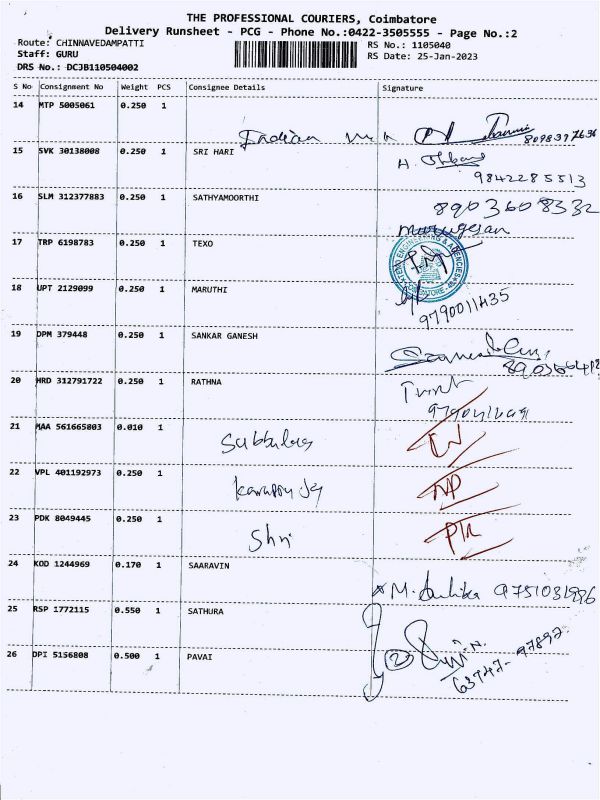 THE PROFESSIONAL COURIERS, Coimbatore
Delivery Runsheet - PCG - Phone No.:0422-3505555 - Page No.:2
Route: CHINNAVEDAMPATTI RS No.: 1105040
Staff: GURU RS Date: 25-Jan-2023
DRS No.: DCJB110504002
S No Consignment No Weight PCS Consignee Details Signature
14 MTP 5005061 0.250 1
Indian
15 SVK 30138008 0.250 1 SRI HARI
9842285513
16 SLM 312377883 0.250 1 SATHYAMOORTHI 8903608332
murugesan
17 TRP 6198783 0.250 1 TEXO
18 UPT 2129099 0.250 1 MARUTHI
9790011435
19 DPM 379448 0.250 1 SANKAR GANESH
20 HRD 312791722 0.250 1 RATHNA
21 MAA 561665803 0.010 1
22 VPL 401192973 0.250 1
NP
23 PDK 8049445 0.250 1
Shri
24 KOD 1244969 0.170 1 SAARAVIN
M. 9751031996
25 RSP 1772115 0.550 1 SATHURA
26 DPI 5156808 0.500 1 PAVAI
63747-97892